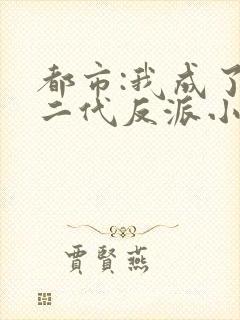 都市:我成了
二代反派.小
賈賢燕